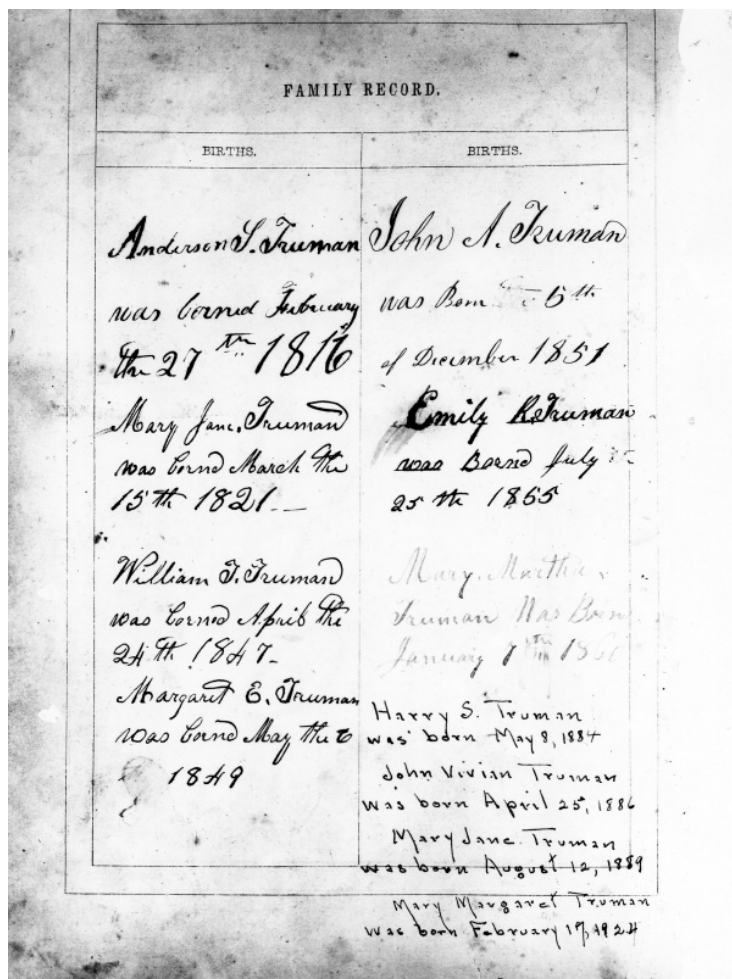 FAMILY RECORD.
BIRTHS.
Anderson S. Truman
was borned February
the 27th 1816
Mary Jane, Truman
was bornd March the
15th 1821
William T. Truman
was borned April the
24th 1847
Margaret E. Truman
was bornd May the 6
1849
BIRTHS.
John A. Truman
was Born 5th
of December 1851
Emily R Truman
was Bornd July
25th 1855
Mary. Martha
Truman Was Born
January
Harry S. Truman
was born May 8, 1884
John Vivian Truman
was born April 25, 1886
Mary Jane Truman
was born August 12, 1889
Mary Margaret Truman
was born February 17, 1924